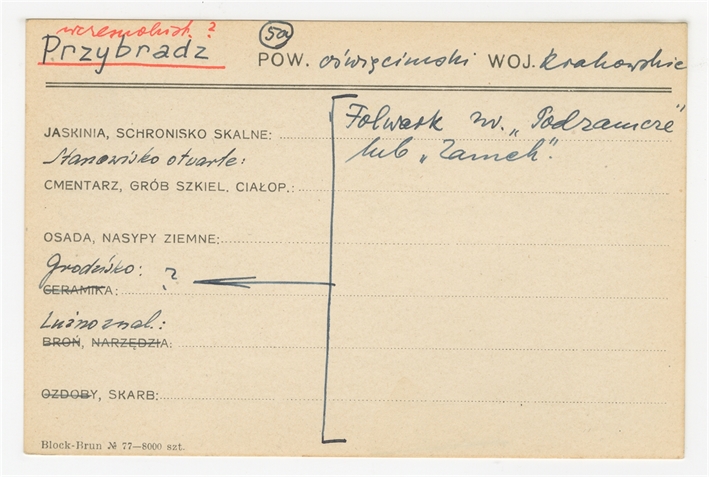 wczesnohist. ?
Przybradz 50 POW. oświęcimski WOJ. Krakowskie
Folwark zw. „Podzamcze"
JASKINIA, SCHRONISKO SKALNE:
lub „Zamek".
Stanowisko otwarte:
CMENTARZ, GRÓB SZKIEL. CIAŁOP.:
OSADA, NASYPY ZIEMNE:
Grodzisko: ?
CERAMIKA:
Luźno znal.:
BROŃ, NARZĘDZIA:
OZDOBY, SKARB:
Block-Brun № 77—8000 szt.